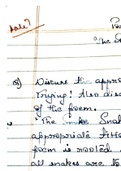 Date?
Q) Discuss the appro
Trying! Also disc
of the poem.
→ The Snake
appropriate title
poem is
all snakes are to